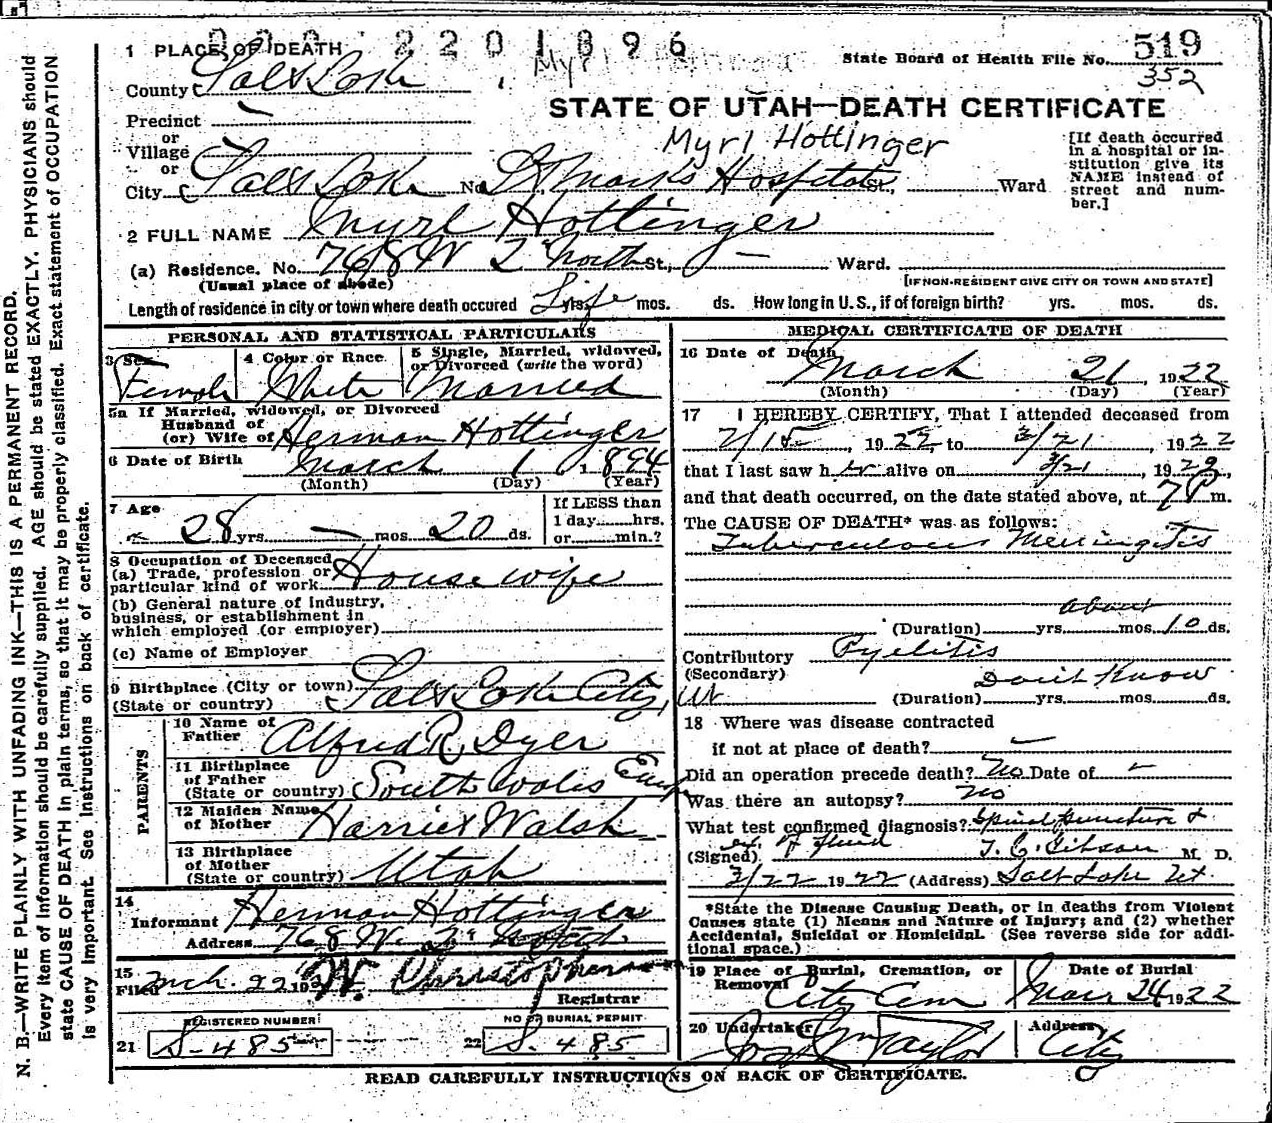 0002201896
1 PLACE OF DEATH
State Board of Health File No. 519
352
County Salt Lake
STATE OF UTAH—DEATH CERTIFICATE
Precinct
or
Village
or
Myrl Hottinger
[If death occurred in a hospital or institution give its NAME instead of street and number.]
City Salt Lake No. St Marks Hospital St. Ward
2 FULL NAME Myrl Hottinger
(a) Residence. No. 768 W 2 North St., Ward.
(Usual place of abode)
[IF NON-RESIDENT GIVE CITY OR TOWN AND STATE]
Length of residence in city or town where death occured Life yrs. mos. ds. How long in U. S., if of foreign birth? yrs. mos. ds.
PERSONAL AND STATISTICAL PARTICULARS
3 Sex
Female
4 Color or Race
White
5 Single, Married, widowed,
or Divorced (write the word)
Married
5a If Married, widowed, or Divorced
Husband of
(or) Wife of Herman Hottinger
6 Date of Birth March 1 1894
(Month) (Day) (Year)
7 Age
28 yrs. — mos. 20 ds.
If LESS than
1 day......hrs.
or......min.?
8 Occupation of Deceased
(a) Trade, profession or
particular kind of work Housewife
(b) General nature of Industry,
business, or establishment in
which employed (or employer)
(c) Name of Employer
9 Birthplace (City or town) Salt Lake City, Ut
(State or country)
PARENTS
10 Name of
Father Alfred R. Dyer
11 Birthplace
of Father
(State or country) South Wales Europe
12 Maiden Name
of Mother Harriet Walsh
13 Birthplace
of Mother
(State or country) Utah
14
Informant Herman Hottinger
Address 768 W. 2nd North
15
Filed Mch. 22 192 W. Christopherson
Registrar
REGISTERED NUMBER
NO OF BURIAL PERMIT
21 S-485
22 S-485
MEDICAL CERTIFICATE OF DEATH
16 Date of Death
March 21, 1922
(Month) (Day) (Year)
17 I HEREBY CERTIFY, That I attended deceased from
2/15, 1922, to 3/21, 1922
that I last saw her alive on 3/21, 1922,
and that death occurred, on the date stated above, at 7 P m.
The CAUSE OF DEATH* was as follows:
Tuberculous Meningitis
about
(Duration) yrs. mos. 10 ds.
Contributory Pyelitis
(Secondary)
Don't Know
(Duration) yrs. mos. ds.
18 Where was disease contracted
if not at place of death? —
Did an operation precede death? No Date of —
Was there an autopsy? No
What test confirmed diagnosis? Spinal puncture &
ex. of fluid
(Signed) T. C. Gibson M. D.
3/22 1922 (Address) Salt Lake Ut.
*State the Disease Causing Death, or in deaths from Violent
Causes state (1) Means and Nature of Injury; and (2) whether
Accidental, Suicidal or Homicidal. (See reverse side for addi-
tional space.)
19 Place of Burial, Cremation, or
Removal
City Cem
Date of Burial
Mar 24 1922
20 Undertaker
Taylor
Address
City
READ CAREFULLY INSTRUCTIONS ON BACK OF CERTIFICATE.
N. B.—WRITE PLAINLY WITH UNFADING INK—THIS IS A PERMANENT RECORD.
Every item of information should be carefully supplied. AGE should be stated EXACTLY. PHYSICIANS should
state CAUSE OF DEATH in plain terms, so that it may be properly classified. Exact statement of OCCUPATION
is very important. See instructions on back of certificate.